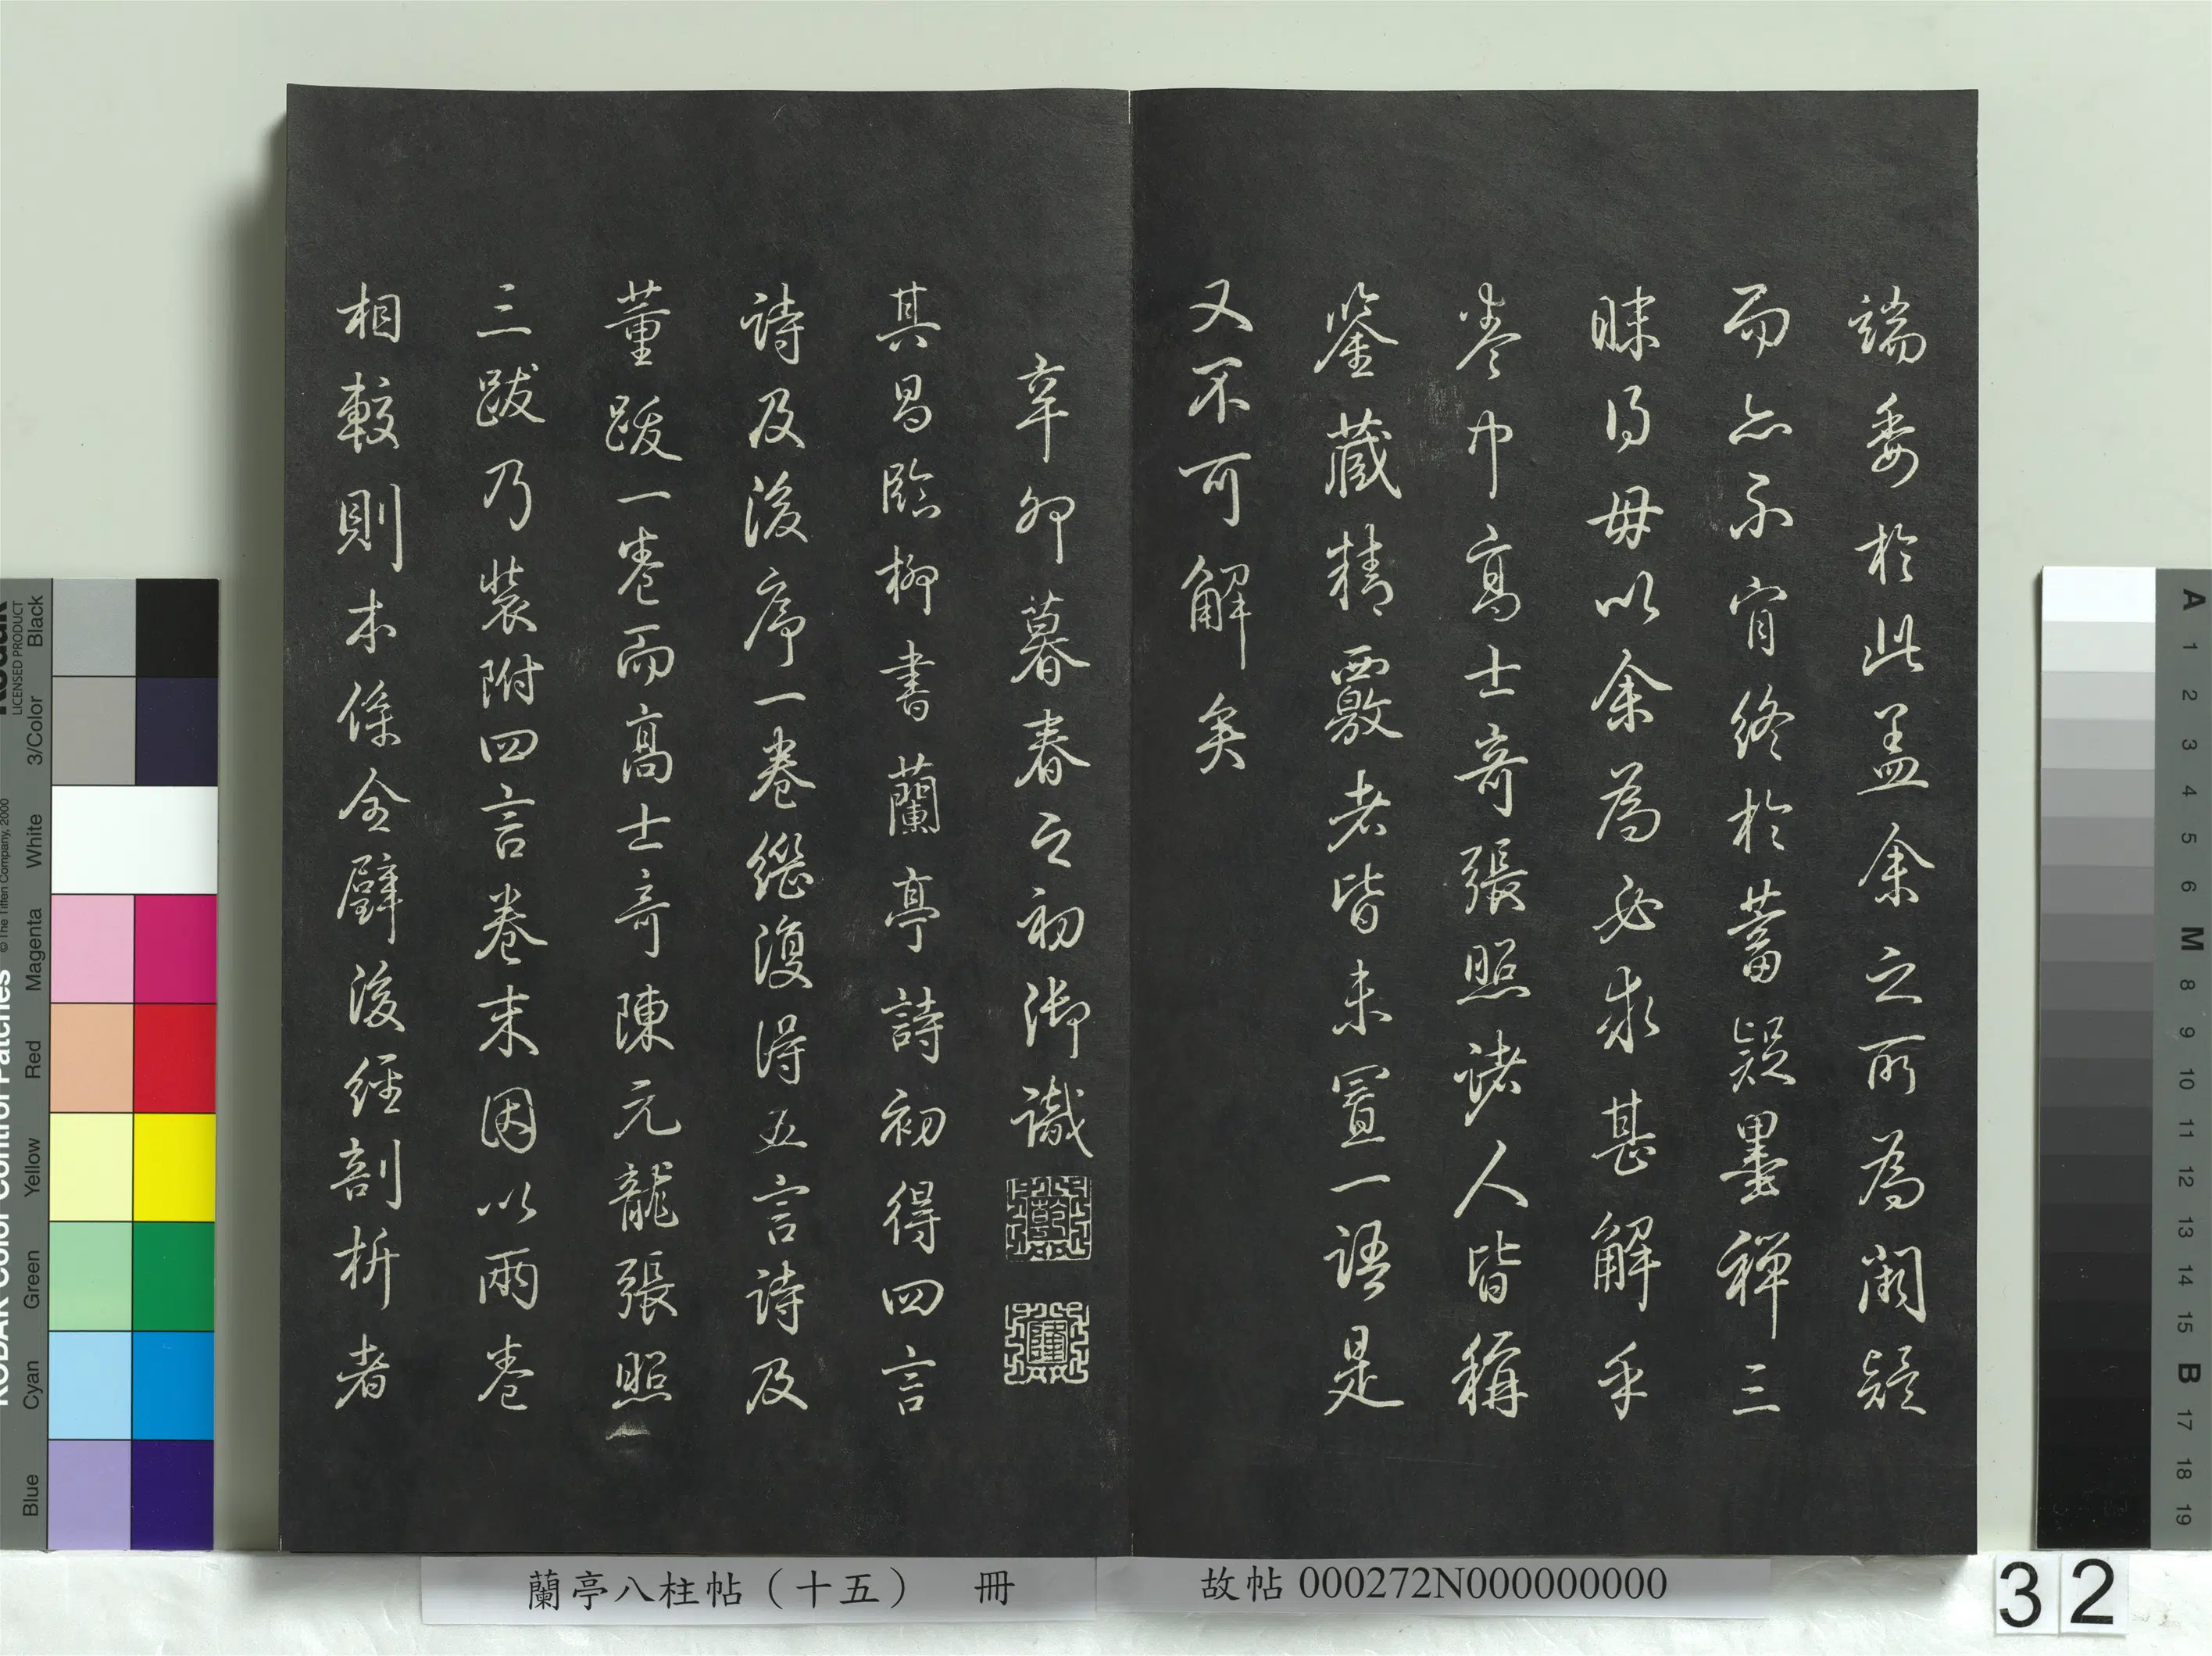 端委於此蓋余之所為闕疑
而亦不肯終於蓄疑墨禪三
昧得毋以余為必求甚解乎
卷中高士奇張照諸人皆稱
鑒藏精覈者皆未置一語是
又不可解矣
辛卯暮春之初御識
乾
隆
其昌臨柳書蘭亭詩初得四言
詩及後序一卷繼復得五言詩及
董跋一卷而高士奇陳元龍張照
三跋乃裝附四言卷末因以兩卷
相較則本係全璧後經剖析者
蘭亭八柱帖（十五） 冊
故帖 000272N000000000
32
KODAK Color Control Patches
LICENSED PRODUCT
© The Tiffen Company, 2000
Blue Cyan Green Yellow Red Magenta White 3/Color Black
A 1 2 3 4 5 6 M 8 9 10 11 12 13 14 15 B 17 18 19